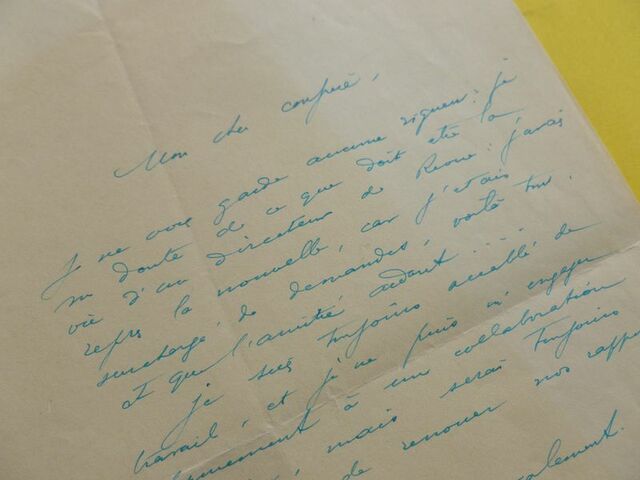 Mon cher confrère,
Je ne vous garde aucune rigueur : je
me doute de ce que doit être la
vie d'un directeur de Revue : j'avais
repris la nouvelle, car j'étais
surchargé de demandes, voilà tout.
Et que l'amitié aidant....
je suis toujours accablé de
travail, et je ne puis m'engager
à une collaboration
, mais serai toujours
de renouer nos